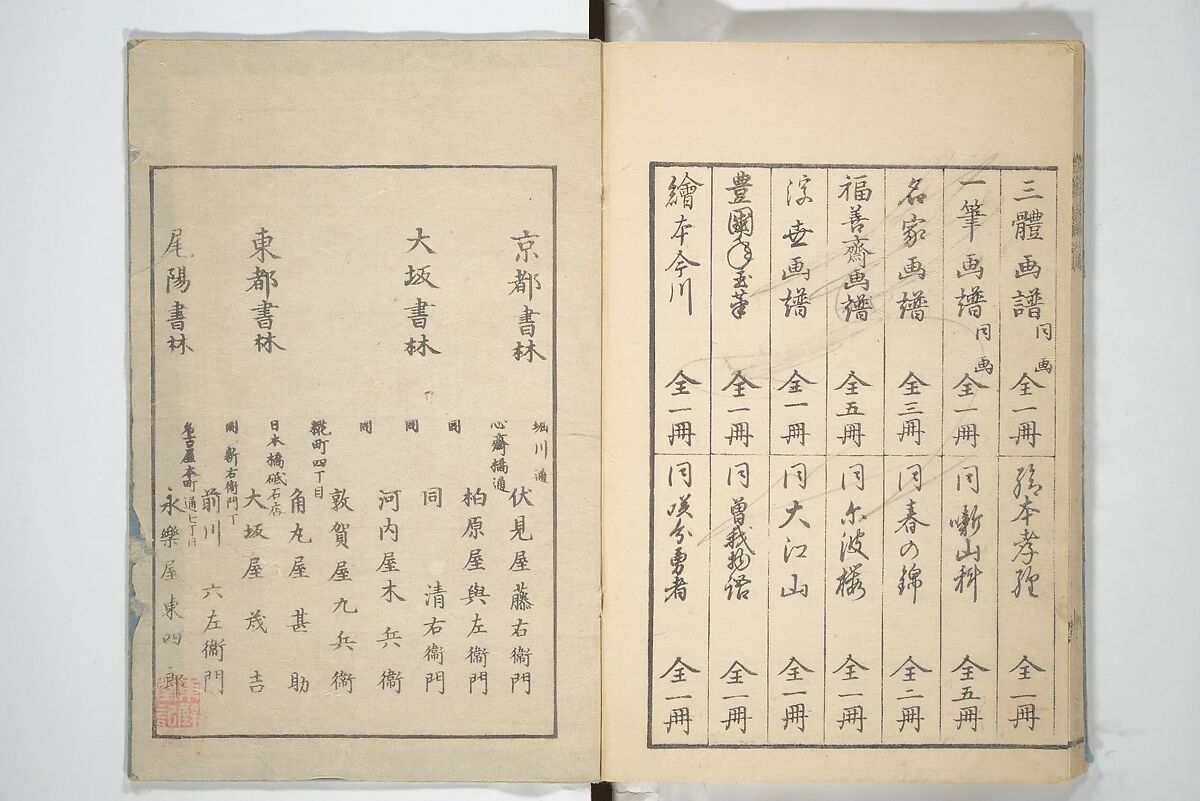 三體画譜 同画 全一冊
一筆画譜 同画 全一冊
名家画譜 全三冊
福善齋画譜 全五冊
浮世画譜 全一冊
豊國年玉筆 全一冊
繪本今川 全一冊
繪本孝經 全一冊
同 噺山科 全五冊
同 春の錦 全二冊
同 尓波桜 全一冊
同 大江山 全一冊
同 曽我物語 全一冊
同 咲分勇者 全一冊
京都書林 堀川通 伏見屋藤右衞門
大坂書林 心齋橋通 柏原屋與左衞門
同 同 清右衞門
同 河内屋木兵衞
同 敦賀屋九兵衞
東都書林 糀町四丁目 角丸屋甚助
日本橋砥石店 大坂屋茂吉
同 新右衞門丁 前川六左衞門
尾陽書林 名古屋本町通七丁目 永樂屋東四郎